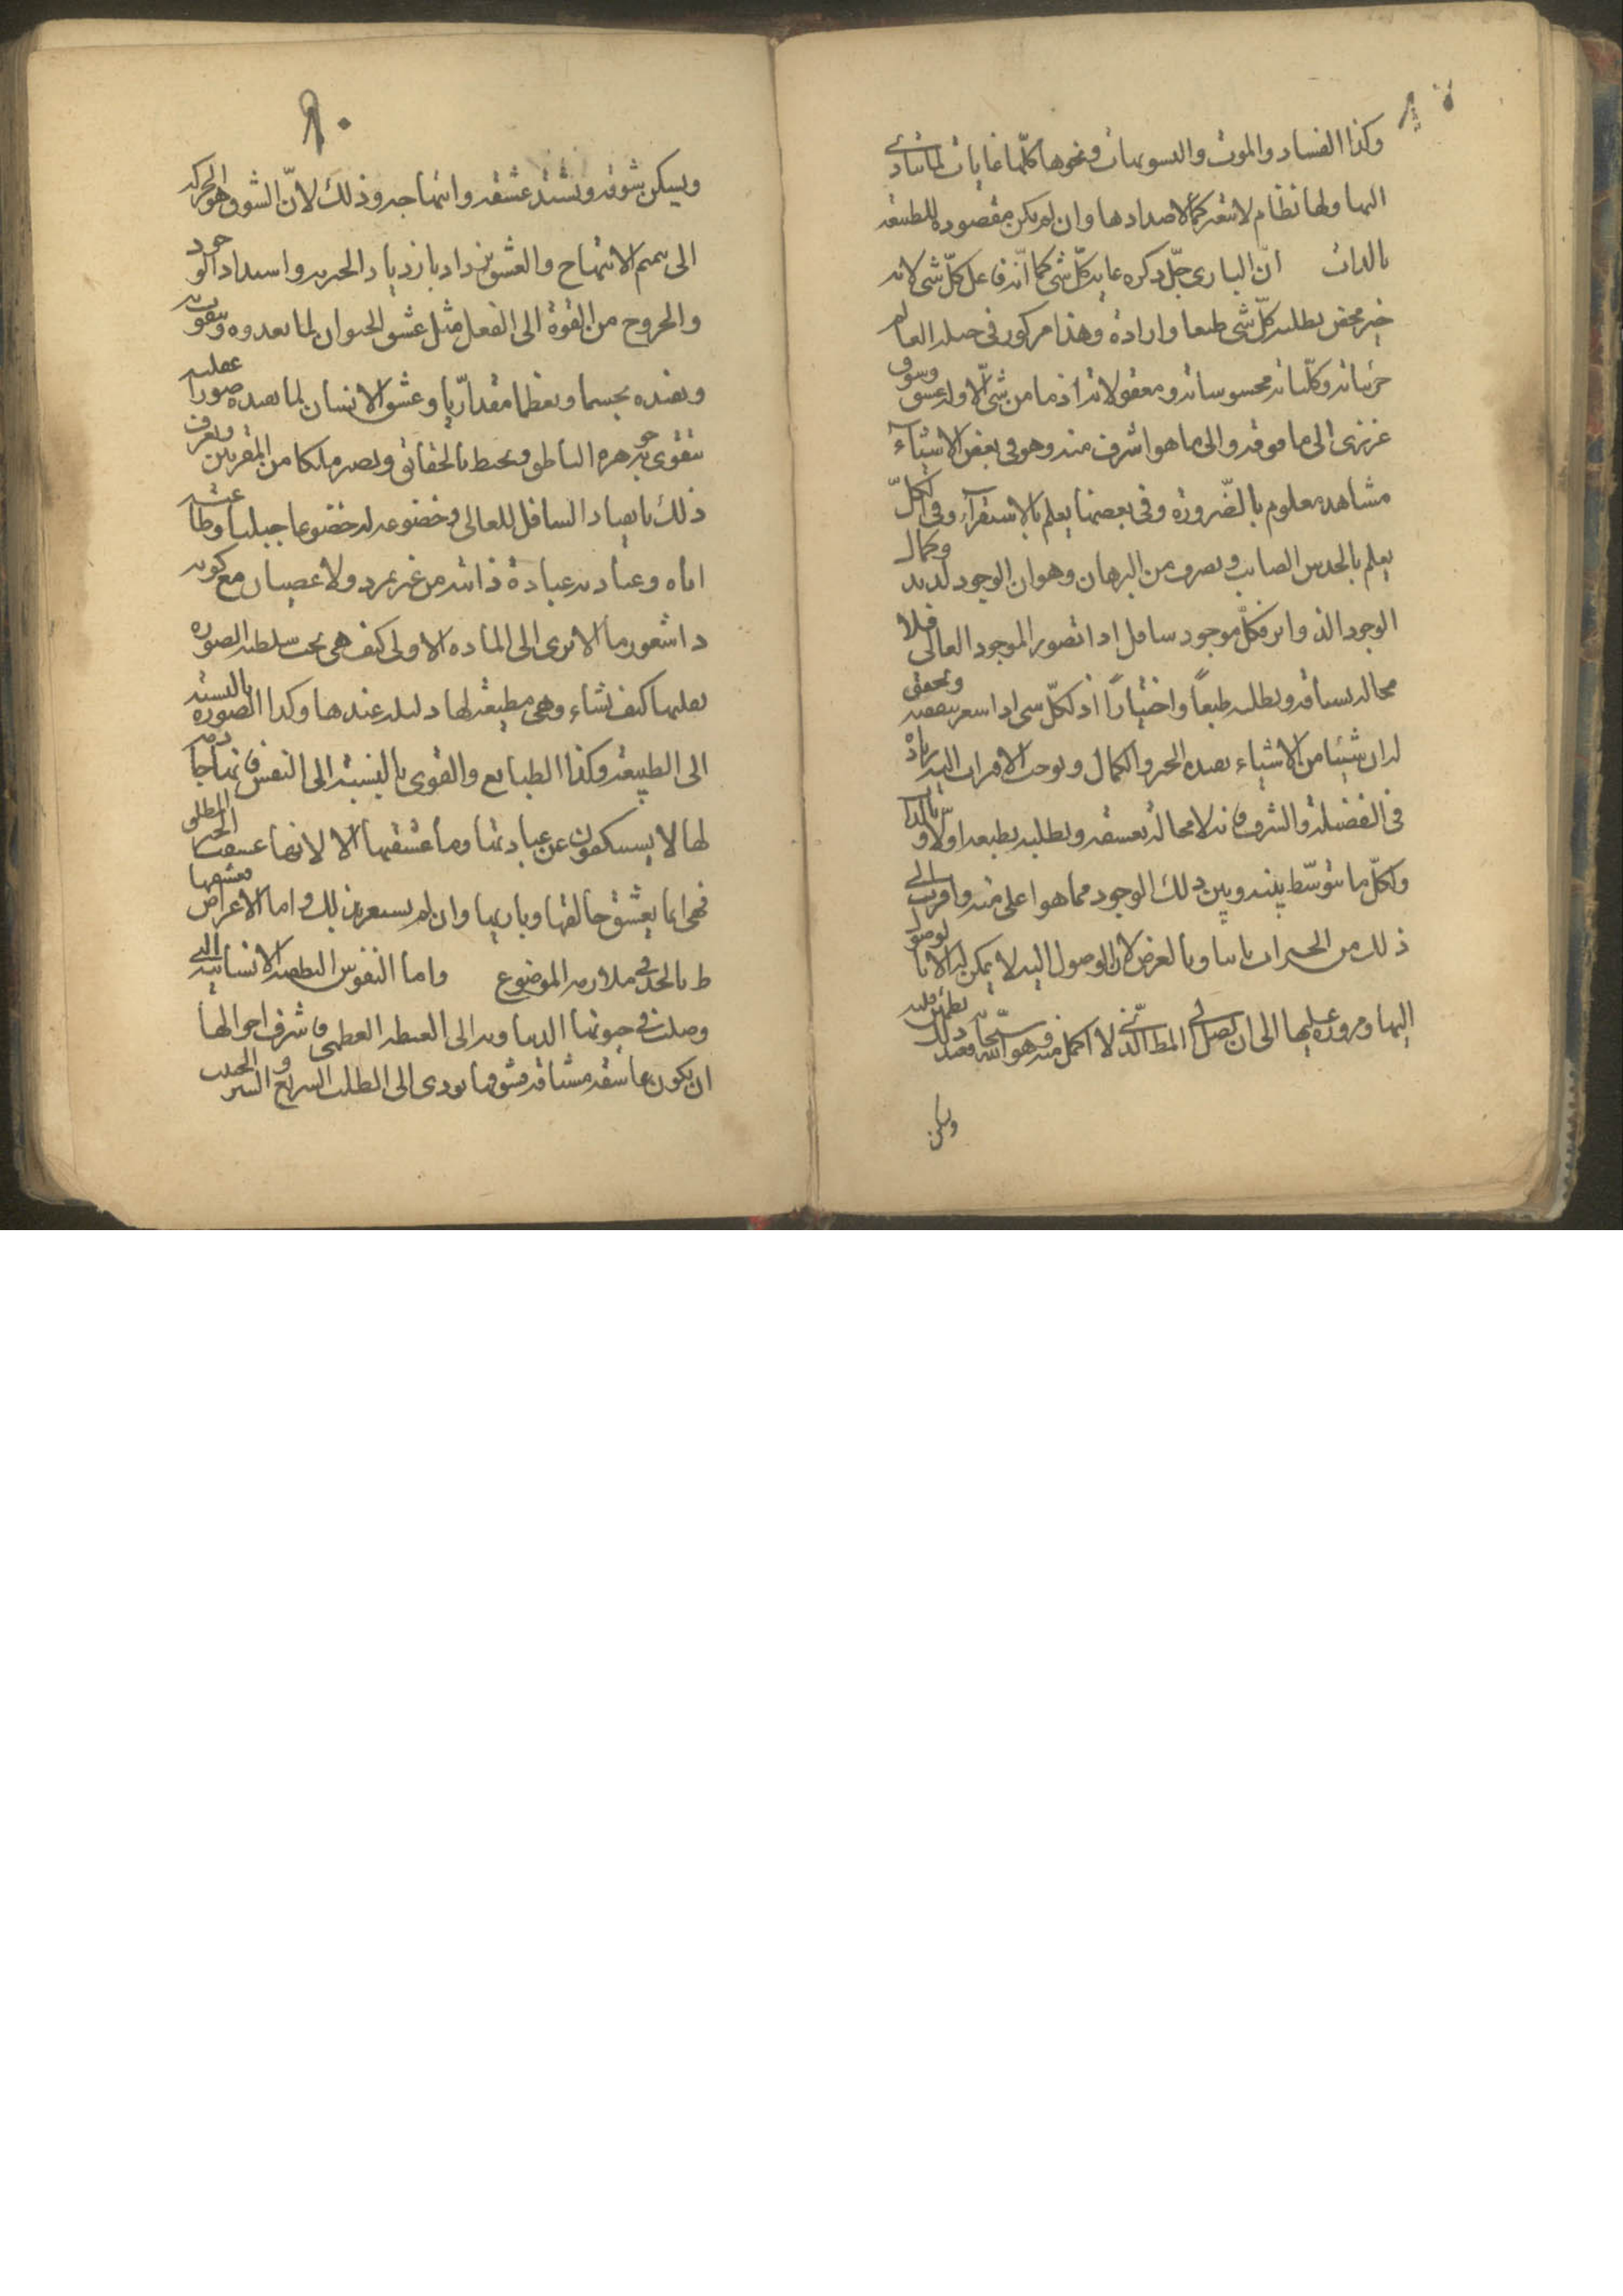 وكذا الفساد والموت والتسويهات ونحوها كلّها غايات لما يتأدى
اليها ولها نظام لا يتغير كما لاضدادها وان لم يكن مقصودة للطبيعة
بالذات انّ الباري جلّ ذكره غاية كلّ شئ كما انّه فاعل كلّ شئ لانه
خير محض يطلبه كلّ شئ طبعا وارادة وهذا مركوز في جبلة العالم
جزئياته وكلّياته محسوساته ومعقولاته اذ ما من شئ الّا وله عشق وشوق
غريزى الى ما فوقه والى ما هو اشرف منه وهو في بعض الاشياء
مشاهد معلوم بالضّرورة وفي بعضها يعلم بالاستقرآء وفي الكلّ
يعلم بالحدس الصايب وبضرب من البرهان وهو ان الوجود لذيذ وكمال
الوجود الذ واثر فكلّ موجود سافل اذا تصور الموجود العالى فلا
محالة يشتاقه ويطلبه طبعاً واختياراً اذ لكلّ شى اذا شعر بنقصه وتحقق
له ان شيئا من الاشياء يفيده الخير والكمال ويوجب الاقتراب اليه زيادة
في الفضيلة والشرف فانه لا محالة يعشقه ويطلبه بطبعه اولّا وبالذات
ولكلّ ما يتوسّط بينه وبين ذلك الوجود مما هو اعلى منه واقرب الى
ذلك من الخيرات ثانيا وبالعرض لان الوصول اليه لا يمكن له الا بالوصول
اليها ومروره عليها الى ان يصل الى المط الّذى لا اكمل منه وهو اللّه سبحانه فعند ذلك يطمئن قلبه
ويسكن
٩٠
ويسكن شوقه ويشتد عشقه وابتهاجه وذلك لانّ الشوق هو الحركة
الى تتميم الابتهاج والعشق يزداد بازدياد الخيرية واشتداد الوجود
والخروج من القوة الى الفعل مثل عشق الحيوان لما يغذوه ويقويه
ويفيده تجسما وتعظما مقداريّا وعشق الانسان لما يفيده صورا عقلية
يتقوى به جوهره الناطق ويحيط بالحقائق ويصير ملكا من المقربين ويعرف
ذلك بانقياد السافل للعالى وخضوعه له خضوعا جبليا وطاعته
اياه وعبادته عبادة ذاتية من غير تمرد ولا عصيان مع كونه
ذا شعور ما الا ترى الى المادة الاولى كيف هى تحت سلطنة الصورة
يقلبها كيف تشاء وهى مطيعة لها ذليلة عندها وكذا الصورة بالنسبة
الى الطبيعة وكذا الطبايع والقوى بالنسبة الى النفس
لها لا يستنكفون عن عبادتها وما عشقها الا لانها عشقت الخير المطلق
فهى انما يعشق خالقها وباريها وان لم يشعر بذلك واما الاعراض فعشقها
ظ بالجد في ملازمة الموضوع واما النفوس الانسانية التى
وصلت في حيوتها الدنيا وية الى الغبطة العظمى فاشرف احوالها
ان يكون عاشقة مشتاقة فشوقها يودى الى الطلب السريع والسير